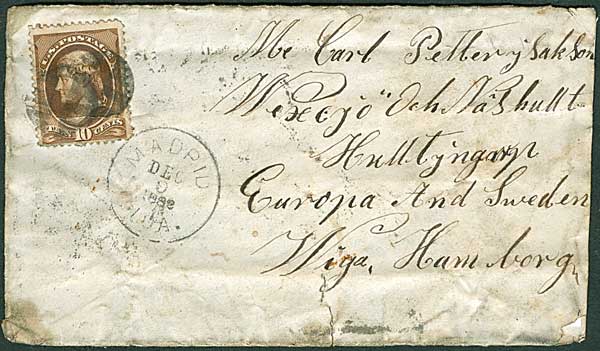 U.S. POSTAGE
10 CENTS
MADRID
DEC
1882
IOWA.
Mr Carl Petter ysakson
Wexcjö" Och Näshult
Hulltjngarp
Europa And Sweden
Wiga, Hamborg